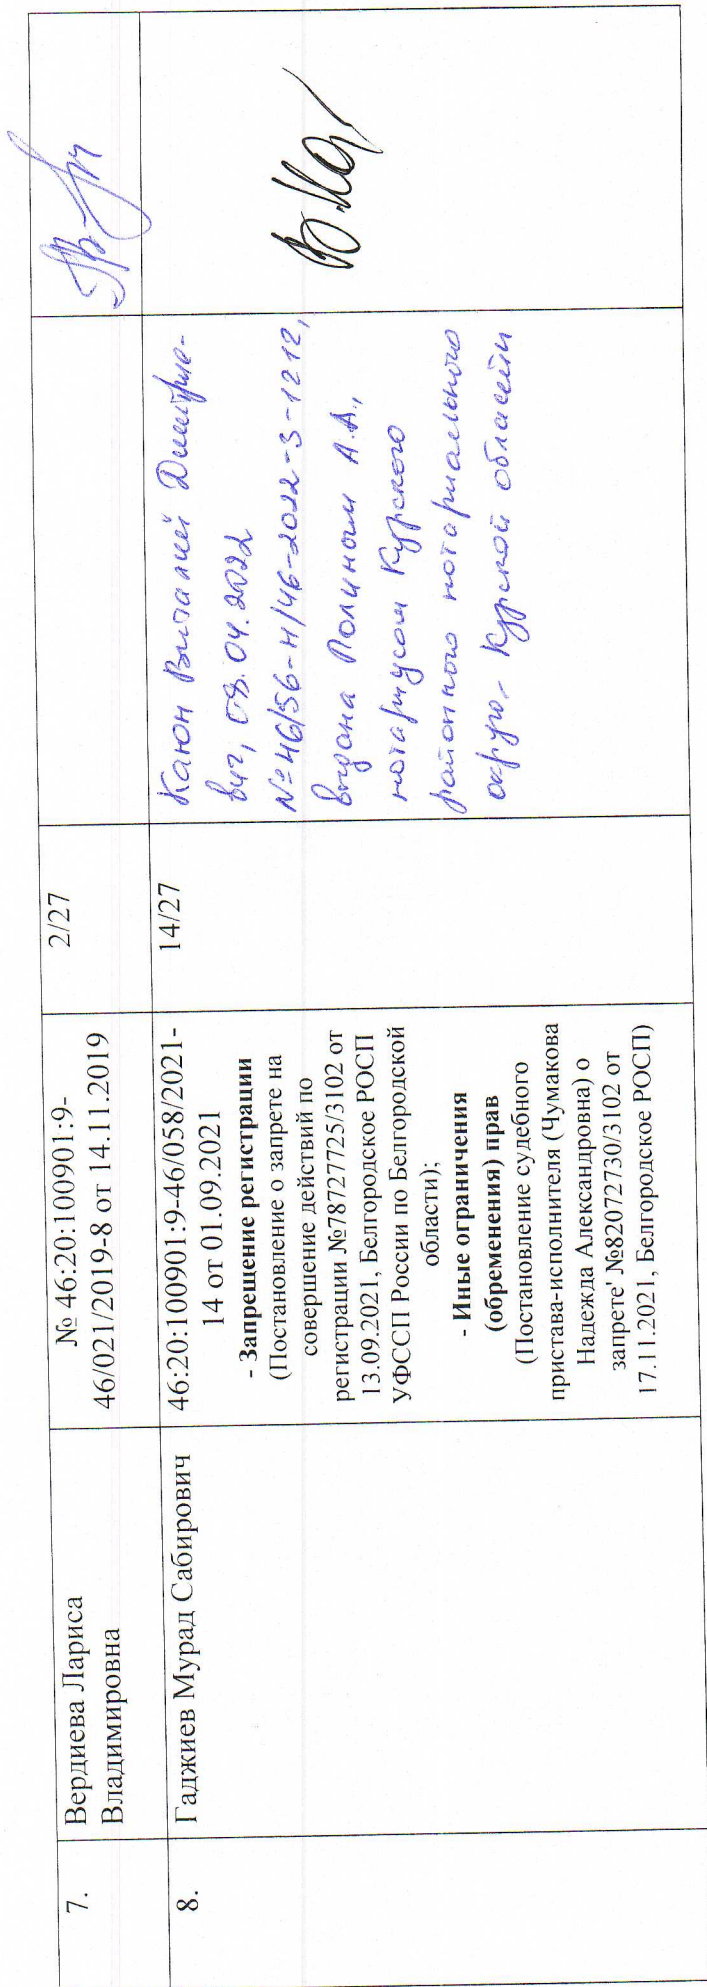 7.
Вердиева Лариса
Владимировна
№ 46:20:100901:9-
46/021/2019-8 от 14.11.2019
2/27
8.
Гаджиев Мурад Сабирович
46:20:100901:9-46/058/2021-
14 от 01.09.2021
- Запрещение регистрации
(Постановление о запрете на
совершение действий по
регистрации №78727725/3102 от
13.09.2021, Белгородское РОСП
УФССП России по Белгородской
области);
- Иные ограничения
(обременения) прав
(Постановление судебного
пристава-исполнителя (Чумакова
Надежда Александровна) о
запрете' №82072730/3102 от
17.11.2021, Белгородское РОСП)
14/27
Каюн Виталий Дмитрие-
вич, 08.04.2022
№46/56-н/46-2022-3-1212,
выдана Полиным А.А.,
нотариусом Курского
районного нотариального
округа, Курской области